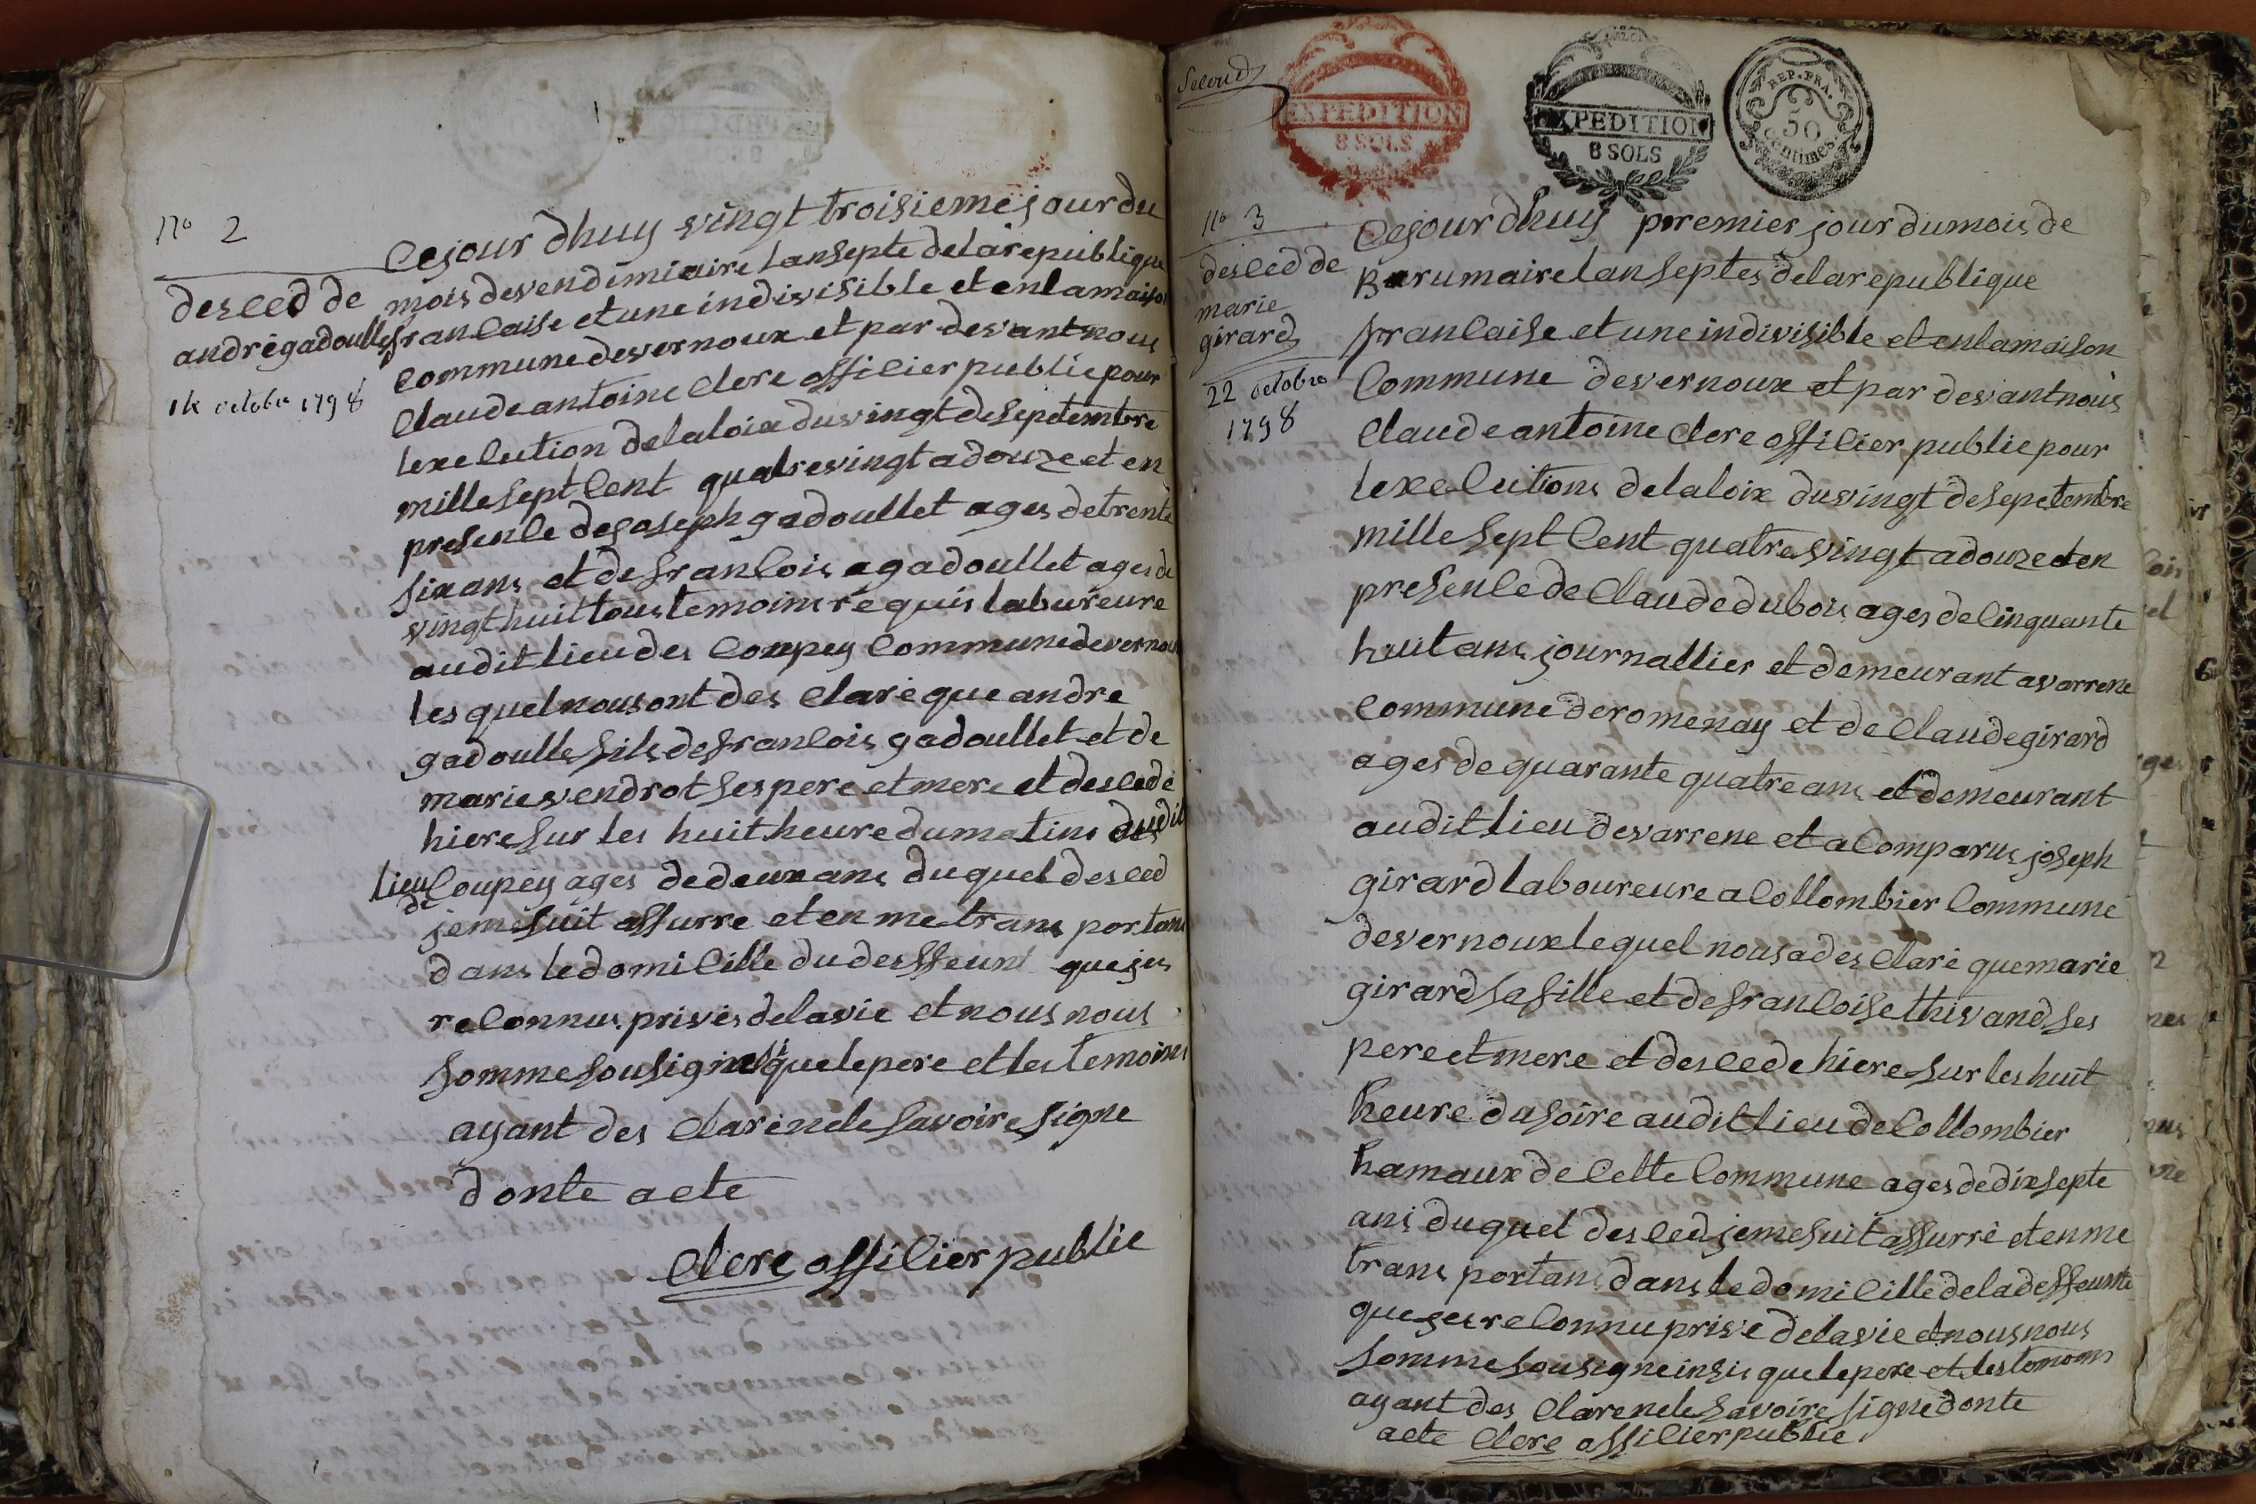 No 2
desced de
andré gadoullet
14 octobre 1798
Cejour dhuy vingt troisieme jour du
mois de vendemiaire lan septe de la republique
francaise et une indivisible et en la maison
commune de vernoux et par devant nous
Claude antoine Clere officier public pour
lexecution de la loix du vingt de septembre
mille sept Cent quatre vingt a douze et en
presence de joseph gadoullet ages de trente
six ans et de francois agadoullet ages de
vingt huit tous temoins requis laboureure
audit lieu des Coupey Commune de vernoux
les quel nous ont des Claré que andre
gadoulle fils de francois gadoullet et de
marie vendrot ses pere et mere et descedé
hiere sur les huit heure du matins audit
lieu de Coupey ages de deux ans du quel desced
je me suit assurre et en me trans portans
dans le domicille du deffeunt que jes
reconnus privés de la vie et nous nous
somme sousignes que le pere et les temoins
ayant des Claré nele savoire signe
donte acte
Clere officier public
Second
EXPEDITION
8 SOLS
EXPEDITION
8 SOLS
REP. FRA.
50
Centimes
No 3
desced de
marie
girard
22 octobre
1798
Cejour dhuy premier jour du mois de
Barumaire lan septes de la republique
francaise et une indivisible et en la maison
Commune de vernoux et par devant nous
Claude antoine Clere officier public pour
lexecutions de la loix du vingt de sepetembre
mille sept Cent quatre vingt a douze et en
presence de Claude dubois ages de Cinquante
huit ans journallier et demeurant a varrene
Commune de romenay et de Claude girard
ages de quarante quatre ans et demeurant
audit lieu de varrene et a Comparus joseph
girard laboureure a Collombier Commune
de vernoux lequel nous a des Claré que marie
girard sa fille et de francoise thivand ses
pere et mere et descede hiere sur les huit
heure du soire audit lieu de Collombier
hamaux de Cette Commune ages de dix septe
ans du quel desced je me suit assurré et en me
trans portans dans le domicille de la deffeunte
que jes reconnu privé de la vie et nous nous
somme sousigne insis que le pere et les temoins
ayant des Clare nele savoire signe donte
acte Clere officier public